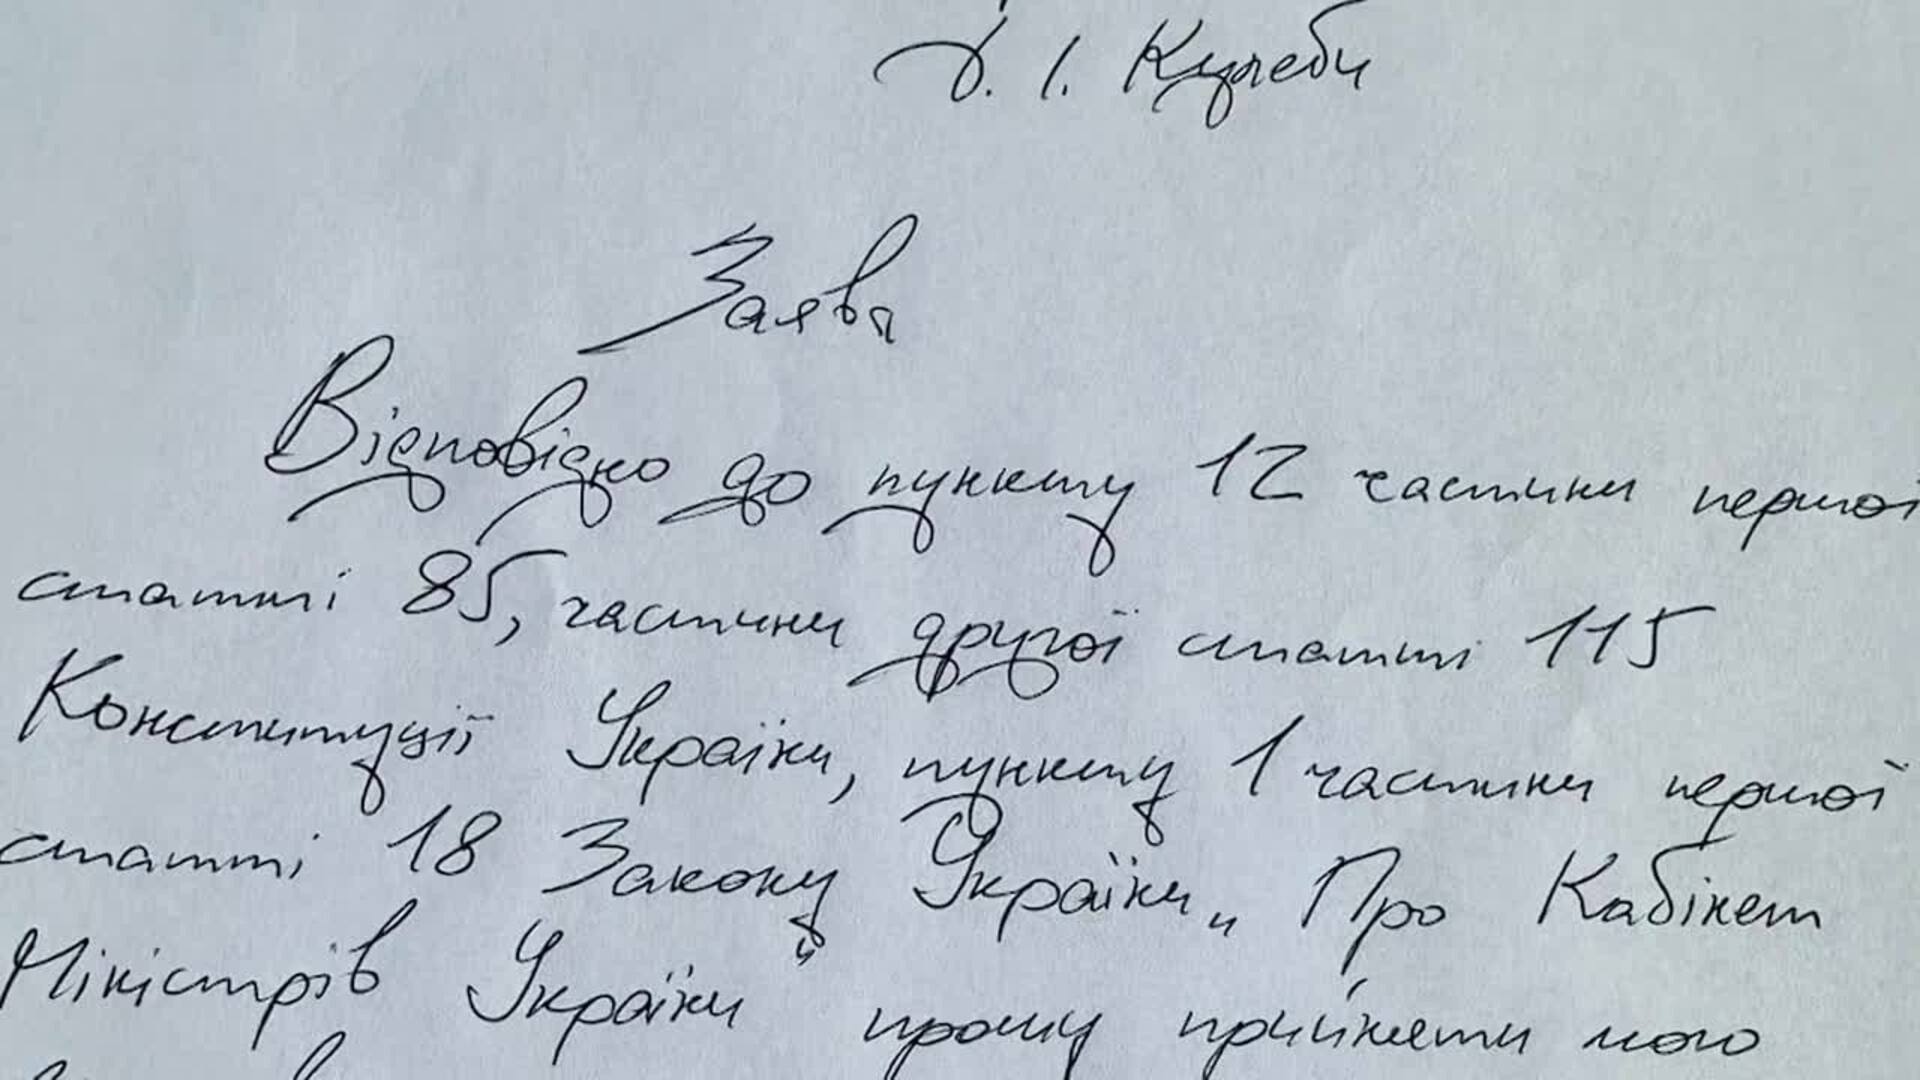 Д. І. Кулеби
Заява
Відповідно до пункту 12 частини першої
статті 85, частини другої статті 115
Конституції України, пункту 1 частини першої
статті 18 Закону України „Про Кабінет
Міністрів України“ прошу прийняти мою